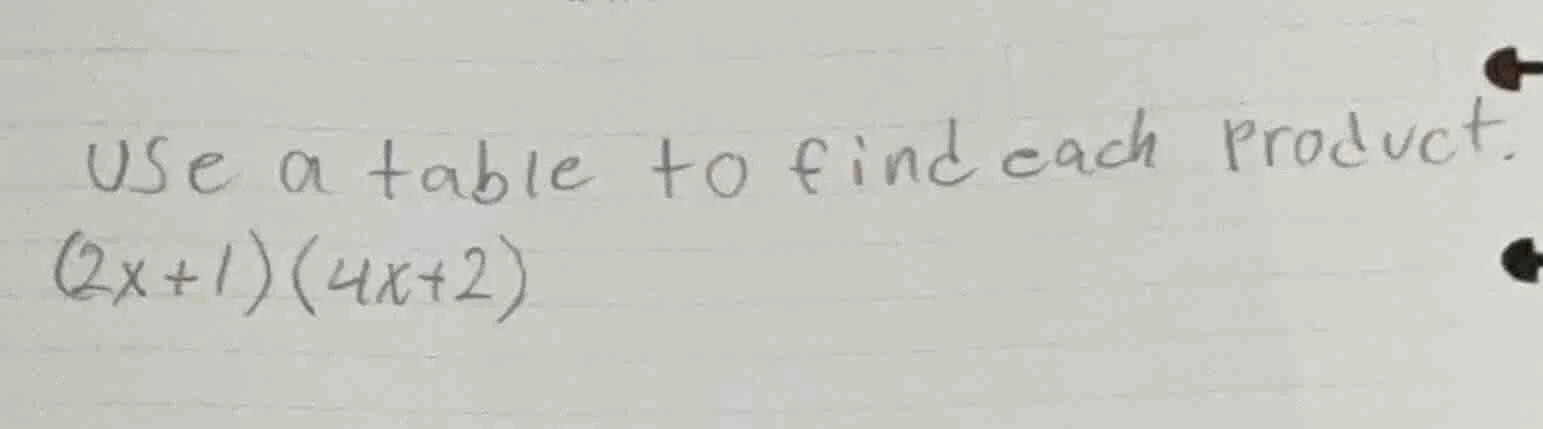 Use a table to find each product.
(2x+1)(4x+2)